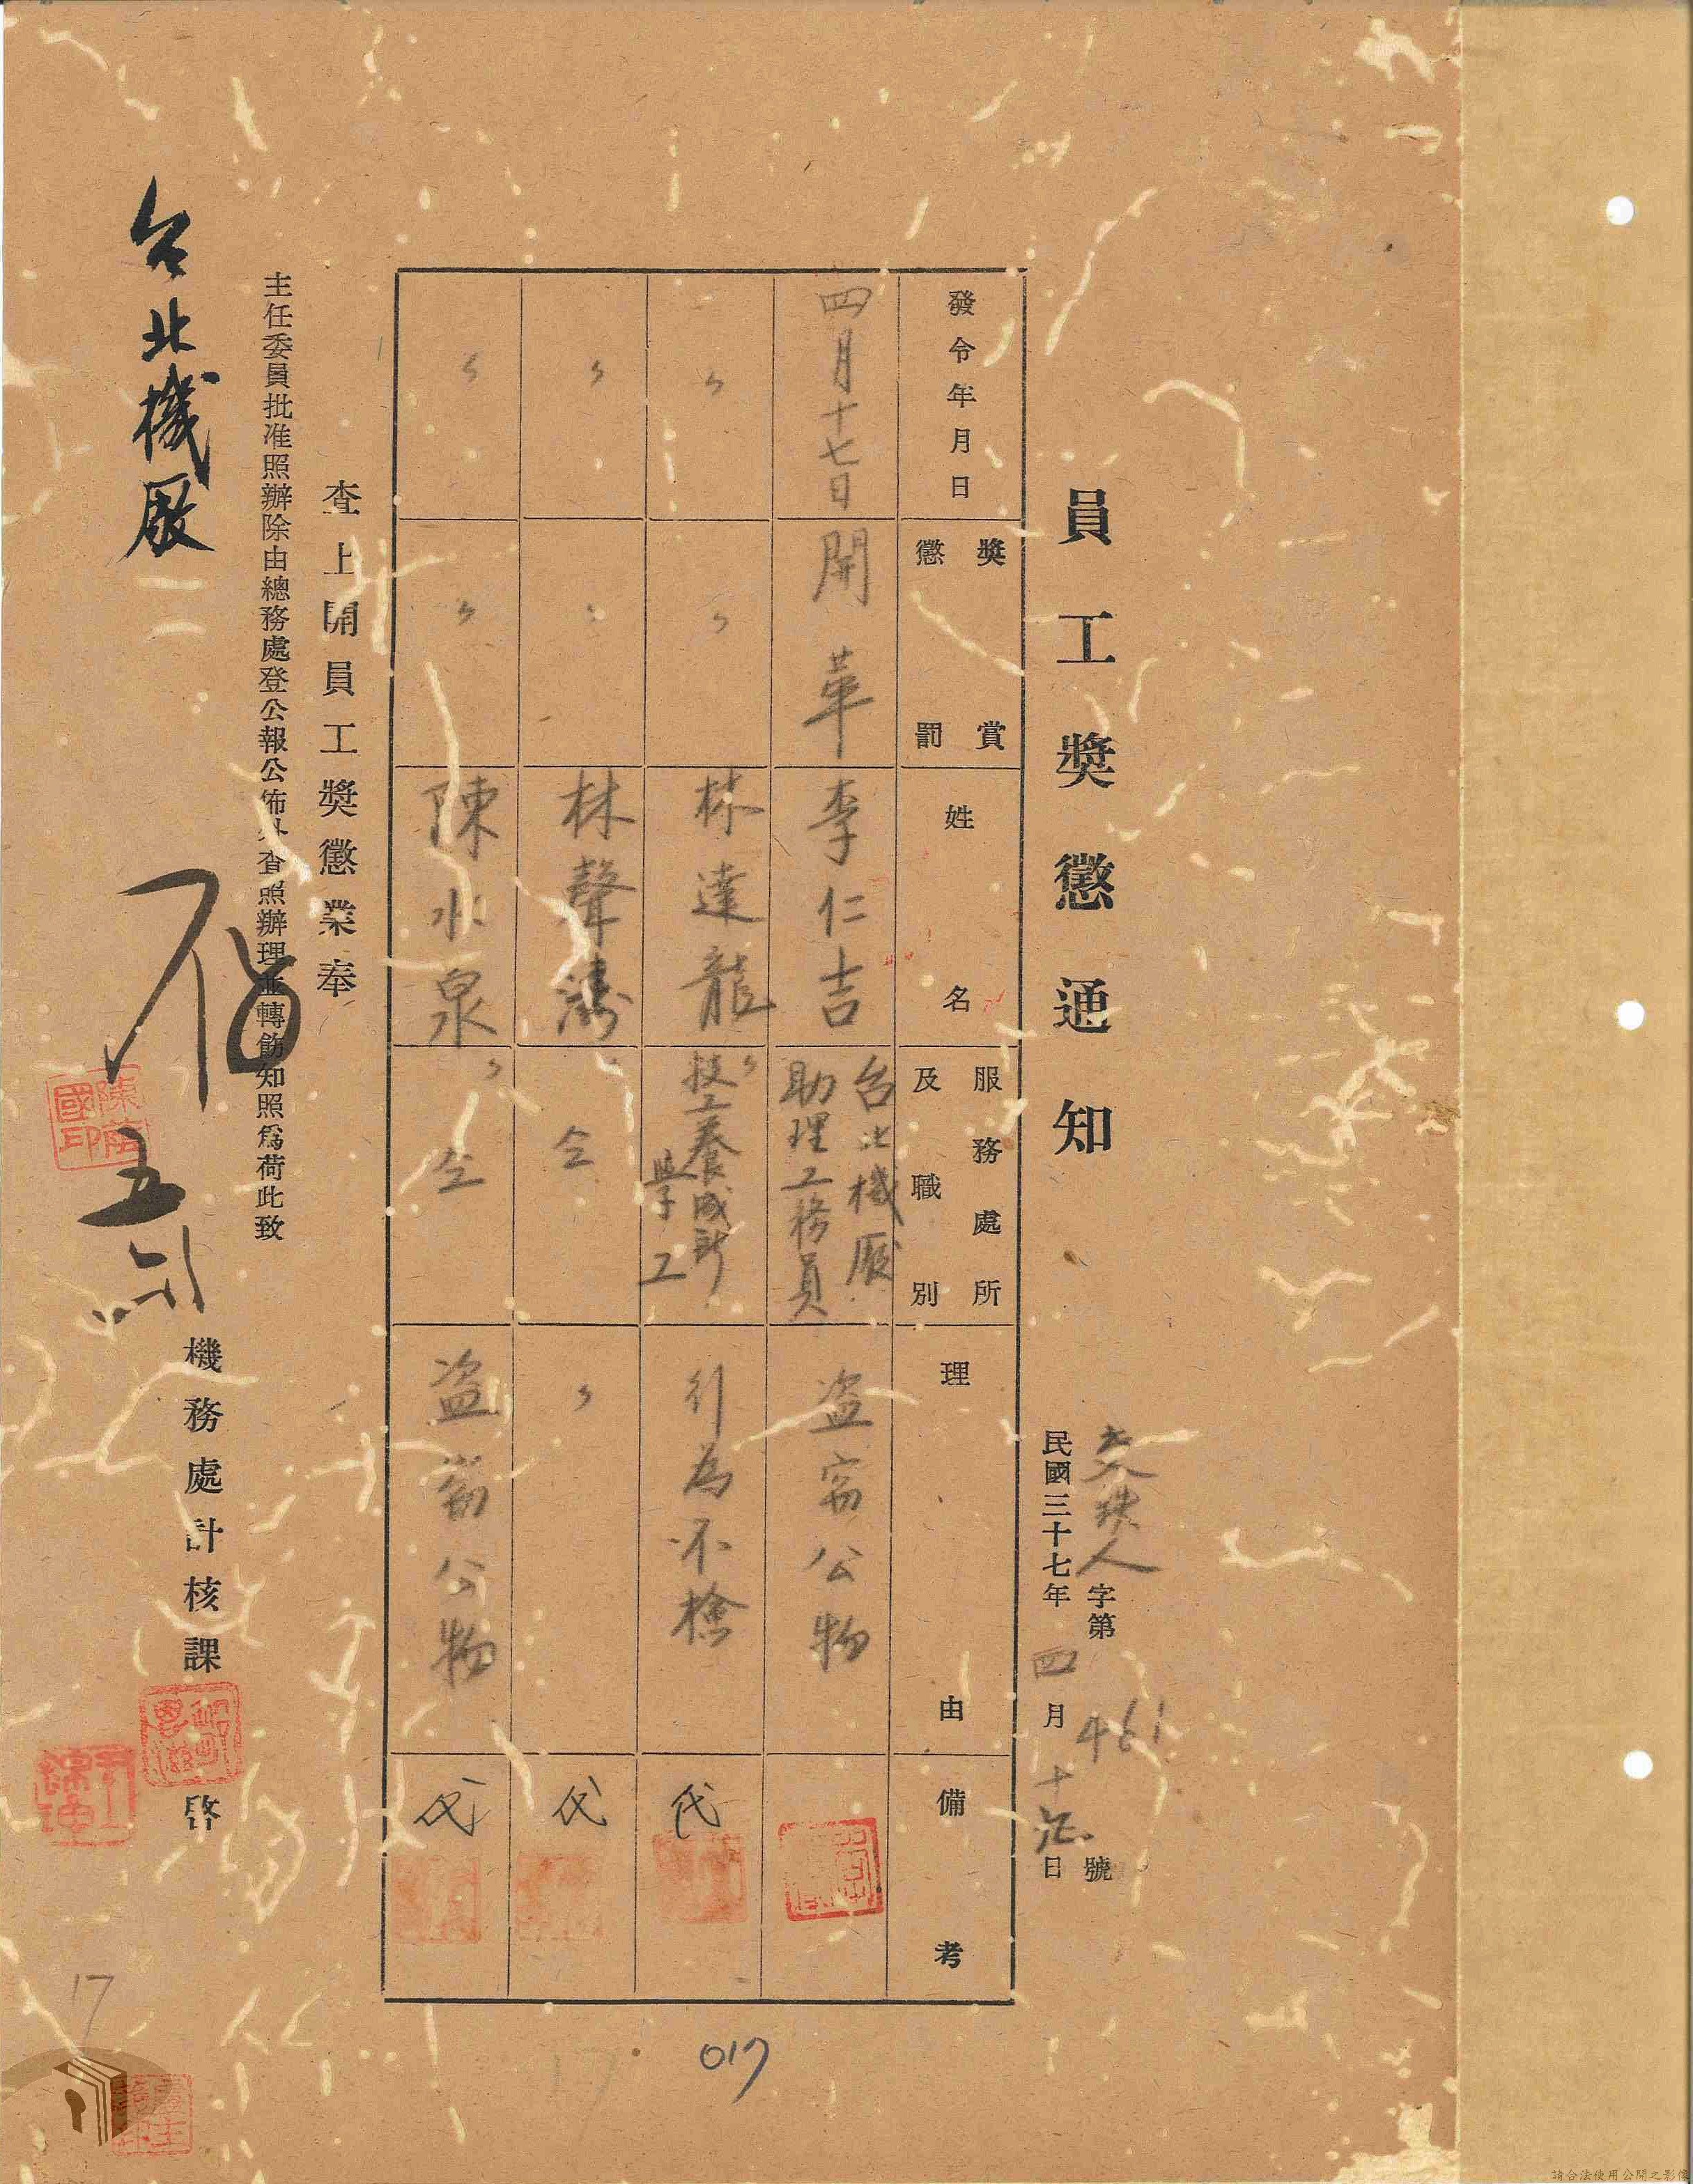 員工獎懲通知
字第461號
民國三十七年四月十 日
發令年月日
獎賞
懲罰
姓名
服務處所
及職別
理由
備考
四月十七日
開革
李仁吉
台北機廠
助理工務員
盜窃公物
〃
〃
林達龍
〃
技工養成所
學工
行為不檢
代
〃
〃
林聲濤
〃
仝
〃
代
〃
〃
陳水泉
〃
仝
盜窃公物
代
查上開員工獎懲業奉
主任委員批准照辦除由總務處登公報公佈外查照辦理並轉飭知照爲荷此致
台北機廠
機務處計核課啓
017
17
請合法使用公開之影像